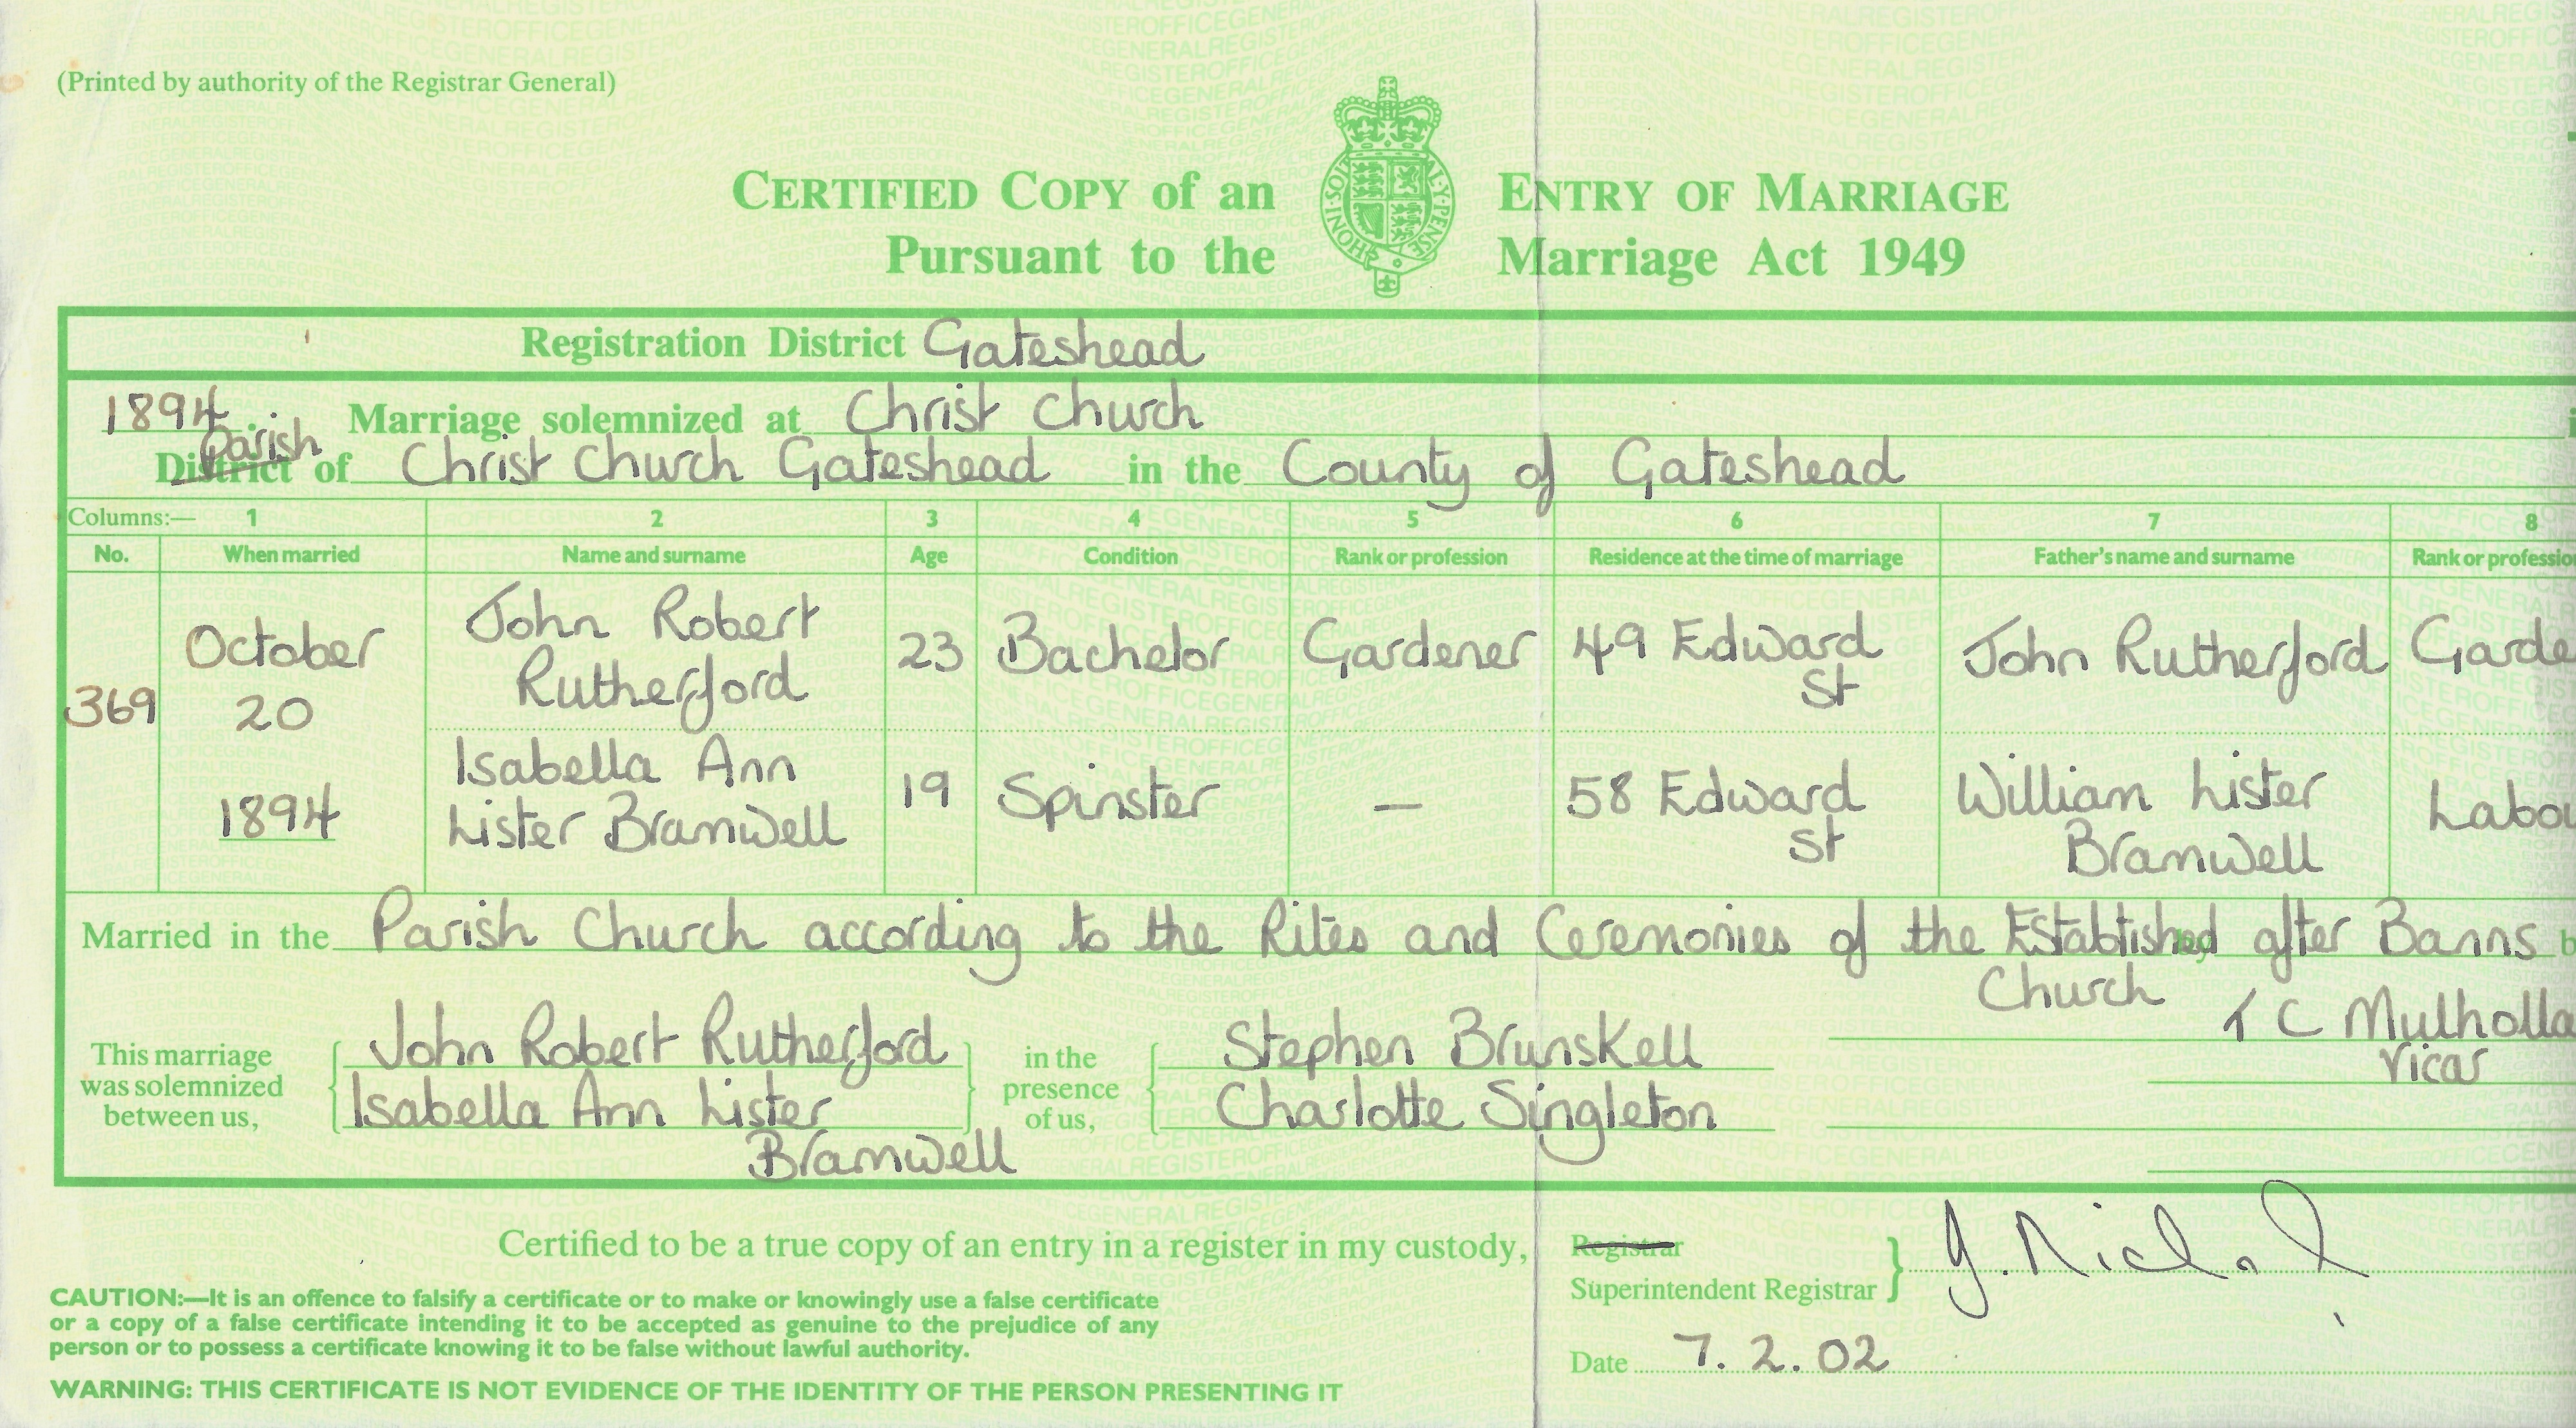 (Printed by authority of the Registrar General)
CERTIFIED COPY of an ENTRY OF MARRIAGE
Pursuant to the Marriage Act 1949
HONI·SOIT·QUI·MAL·Y·PENSE
Registration District Gateshead
1894. Marriage solemnized at Christ Church
Parish
District of Christ Church Gateshead in the County of Gateshead
Columns:— 1 2 3 4 5 6 7 8
No. When married Name and surname Age Condition Rank or profession Residence at the time of marriage Father's name and surname Rank or professio
369 October 20 1894
John Robert Rutherford 23 Bachelor Gardener 49 Edward St John Rutherford Garde
Isabella Ann Lister Bramwell 19 Spinster — 58 Edward St William Lister Bramwell Labou
Married in the Parish Church according to the Rites and Ceremonies of the Established after Banns b
Church
T C Mulholla
Vicar
This marriage was solemnized between us,
John Robert Rutherford
Isabella Ann Lister
Bramwell
in the presence of us,
Stephen Brunskell
Charlotte Singleton
Certified to be a true copy of an entry in a register in my custody,
Registrar
Superintendent Registrar
Date 7.2.02
CAUTION:—It is an offence to falsify a certificate or to make or knowingly use a false certificate
or a copy of a false certificate intending it to be accepted as genuine to the prejudice of any
person or to possess a certificate knowing it to be false without lawful authority.
WARNING: THIS CERTIFICATE IS NOT EVIDENCE OF THE IDENTITY OF THE PERSON PRESENTING IT